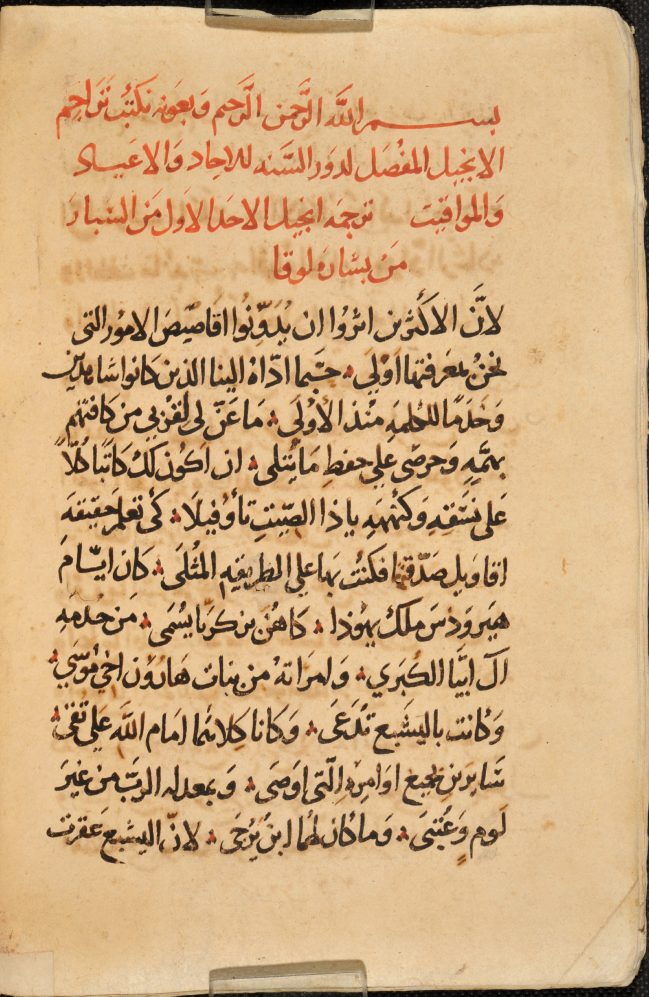 بسم الله الرَّحمن الرَّحيم وَبعَونه نكتبُ تَراجم
الانجيل المفُصَل لدَور السَّنه للاحاد وَالاعياد
وَالمواقيت ترجمَه انجيل الاحد الاوَل مَن السُبارَ
مَن بشارَه لوقا
لانَّ الاكثرين اثرُوا ان يُدَوّنُوا اقاصّيصَ الامُور التى
نحنُ بمعَرفتها اَوْلى حسَبما ادّاهُ الينا الذين كانوا شاهدين
وَخدَمًا للكلمهِ منُذ الأوْلَى مَا عَنّ لى لقرْبي من كافتهُم
بهمَّهٍ وَحرصٍ على حفظِ مَا يُتلى ان اكوُن لكَ كاتبًا كُلّاً
عَلى نسَقهِ وَكنُههِ ياذا الصّيتِ تأوفيلَا كَى تعلمَ حَقيقهَ
اقاويل صَدّقتها فكنُت بها على الطريقهِ المُثلَى كان ايّام
هيَروُدسَ مَلك يهُوذا كاهُن زكرّيا يسُمَى مَن خدمَهِ
آل ابيَّا الكبَري وَامرَاتهُ من بنات هَارُون اخى مُوسَي
وَكانت باليشبع تُدْعَى وَكانا كلاهُما امَام اللَّه عَلى تُقىً
سَايرينِ بجميع اوَامِرَهِ الّتى اوصَى وَبعدله الربّ من غيَرَ
لَومٍ وَعُتبَى وَما كان لهُما ابنٌ يرُجَى لانّ اليشبعَ عَقرت